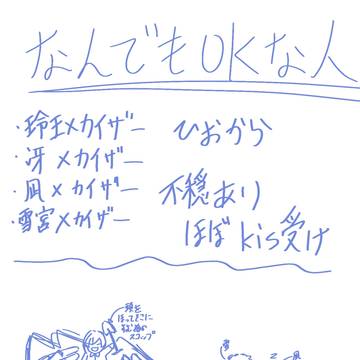 なんでもOKな人
・玲王×カイザー
・冴×カイザー
・凪×カイザー
・雪宮×カイザー
ひおから
不穏あり
ほぼkis受け
頭を